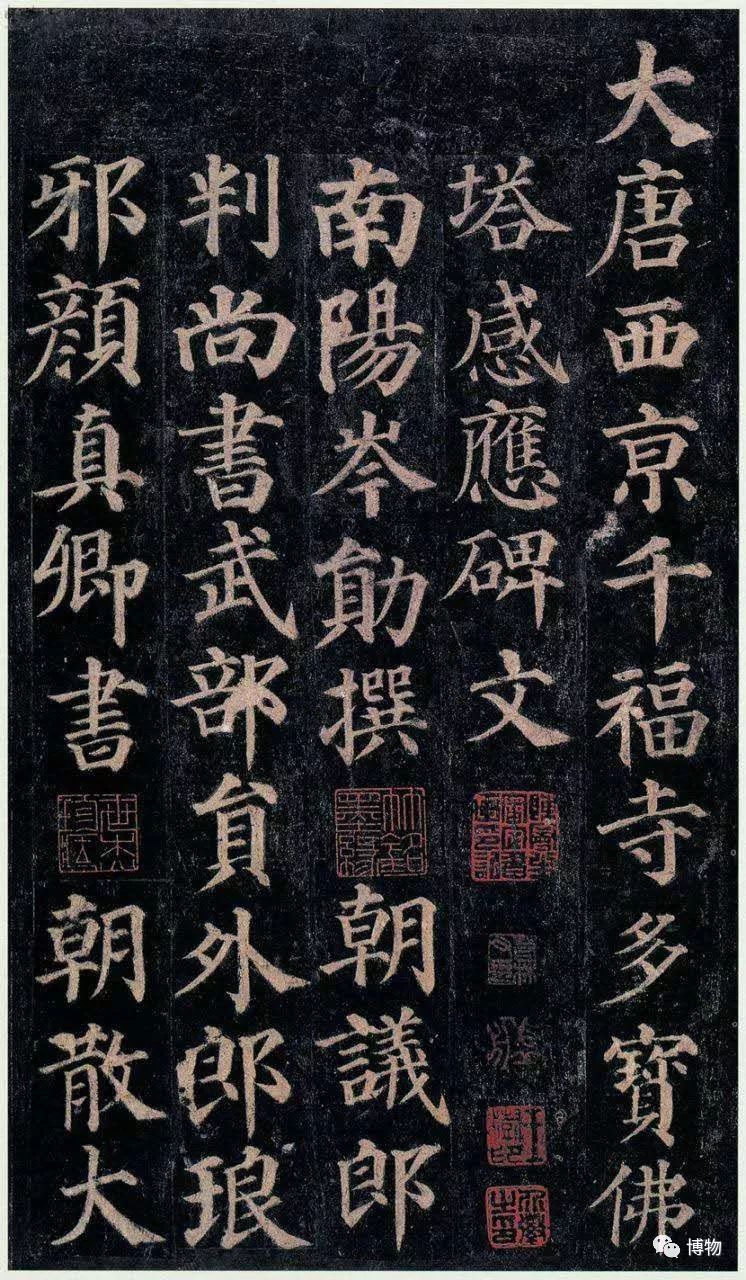 大唐西京千福寺多寶佛
塔感應碑文
南陽岑勛撰 朝議郎
判尚書武部員外郎琅
邪顏真卿書 朝散大
博物